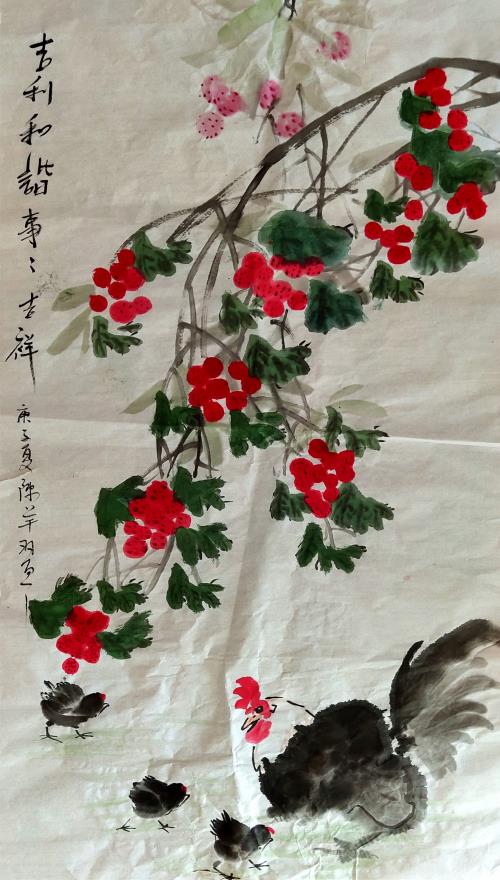 吉利和谐事〻吉祥
庚子夏陈羊羽画